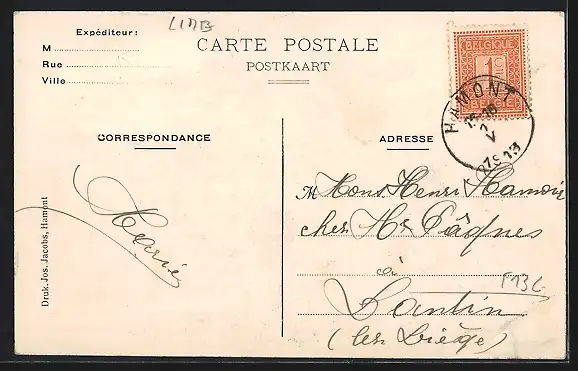 LIMB
Expéditeur:
M
Rue
Ville
CARTE POSTALE
POSTKAART
BELGIQUE
1C
BELGIË
HAMONT
CORRESPONDANCE
ADRESSE
Marie
M Mons. Henri Hamoir
chez Mr Pâques
à
Lantin
(lez Liège)
Druk. Jos. Jacobs, Hamont